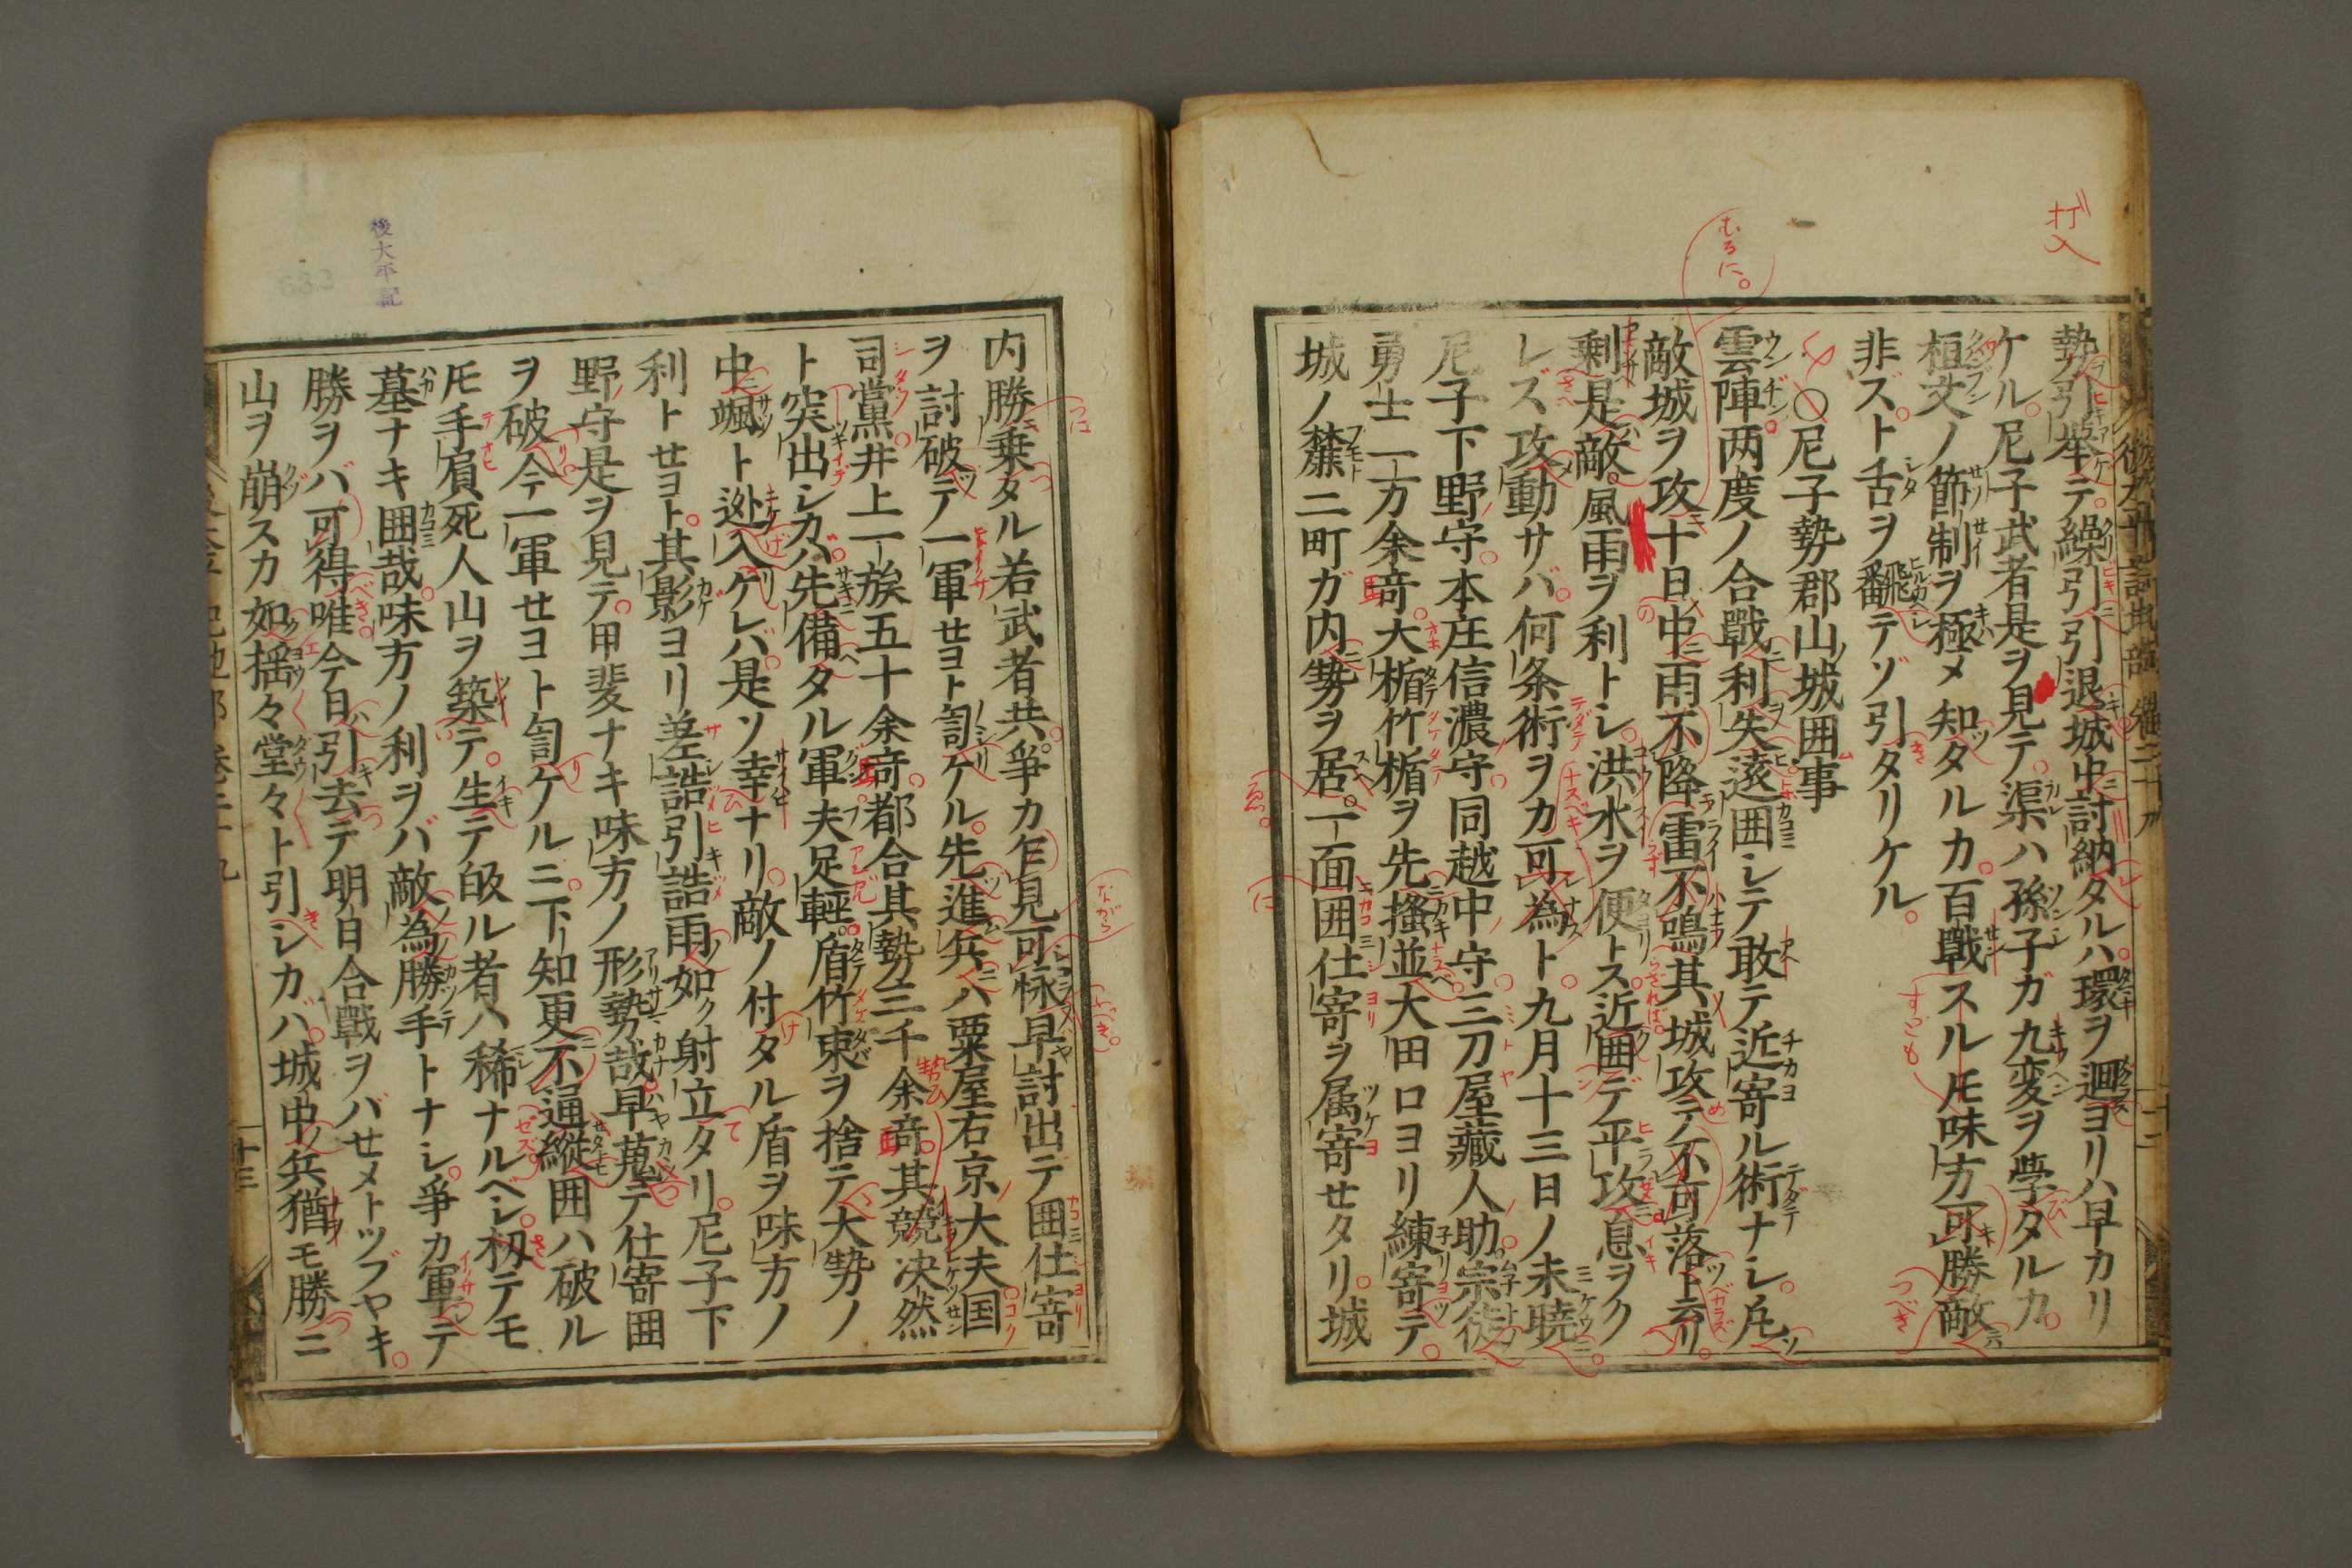 勢引挙テ。繰引ニ引退。城中ニ討納タルハ。環ヲ廻ヨリハ早カリ
ケル。尼子武者是ヲ見テ。渠ハ孫子ガ九変ヲ學タルカ。
桓文ノ節制ヲ極メ知タルカ。百戰スル𪜈味方可勝敵ニ
非ズト。舌ヲ飜テゾ引タリケル。
○尼子勢郡山ノ城囲事
雲陣兩度ノ合戰ニ利ヲ失ヒ。遠囲シテ敢テ近寄ル術ナシ。凡ソ
敵城ヲ攻ニ十日ノ中ニ雨不降雷不鳴其城攻テ不可落ト云リ。
剰ヘ是ハ敵。風雨ヲ利トシ。洪水ヲ便トス。近囲デ平攻ニ息ヲク
レズ攻動サバ。何条術ヲカ可為ト。九月十三日ノ未暁ニ。
尼子下野守。本庄信濃守。同越中守。三刀屋藏人助。宗徒ノ
勇士一万余竒。大楯竹楯ヲ先ニ搔並ベ。大田口ヨリ練寄テ。
城ノ麓二町ガ内ニ勢ヲ居ヘ。一面ニ囲ミ仕寄ヲ属寄セタリ。城
内勝ニ乗タル若武者共。爭カ乍見可怺。早討出テ囲仕寄
ヲ討破テノ一軍セヨト訇ケル。先ニ進ム兵ニハ粟屋右京大夫国
司黨。井上一族五十余竒。都合其勢三千余竒。其競決然
ト突出シカバ。先ニ備ヘタル軍夫足輕。盾竹束ヲ捨テ大勢ノ
中ニ颯ト迯入ケレバ。是ソ幸ナリ。敵ノ付タル盾ヲ味方ノ
利トセヨト。其影ヨリ差詰引詰雨ノ如ク射立タリ。尼子下
野守是ヲ見テ。甲斐ナキ味方ノ形勢哉。早墓テ仕寄囲
ヲ破リ。今一軍セヨト訇ケルニ。下知更ニ不通縦囲ハ破ル
𪜈手負死人山ヲ築テ。生テ皈ル者ハ稀ナルベシ。扨テモ
墓ナキ囲哉。味方ノ利ヲバ敵ノ為勝手トナシ。爭カ軍シテ
勝ヲバ可得。唯今日ハ引去テ明日合戰ヲバセメトツブヤキ。
山ヲ崩スカ如ク揺々堂々ト引シカバ。城中ノ兵猶モ勝ニ
むろに。
後太平記
十三